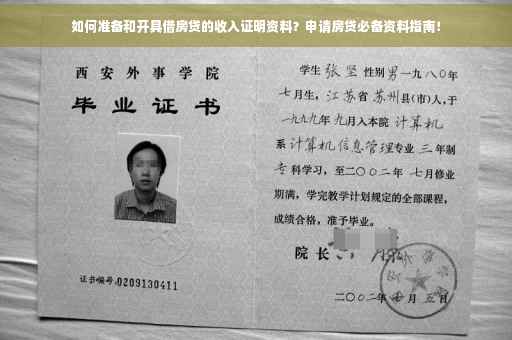 如何准备和开具借房贷的收入证明资料？申请房贷必备资料指南！
西安外事学院
毕业证书
证书编号:0209130411
学生 张坚 性别 男 一九八〇年
七月生，江苏省 苏州 县(市)人，于
一九九九年 九月入本院 计算机
系 计算机信息管理专业 三 年制
专 科学习，至二〇〇二年 七月修业
期满，学完教学计划规定的全部课程，
成绩合格，准予毕业。
院长
二〇〇二年 七 月 五 日